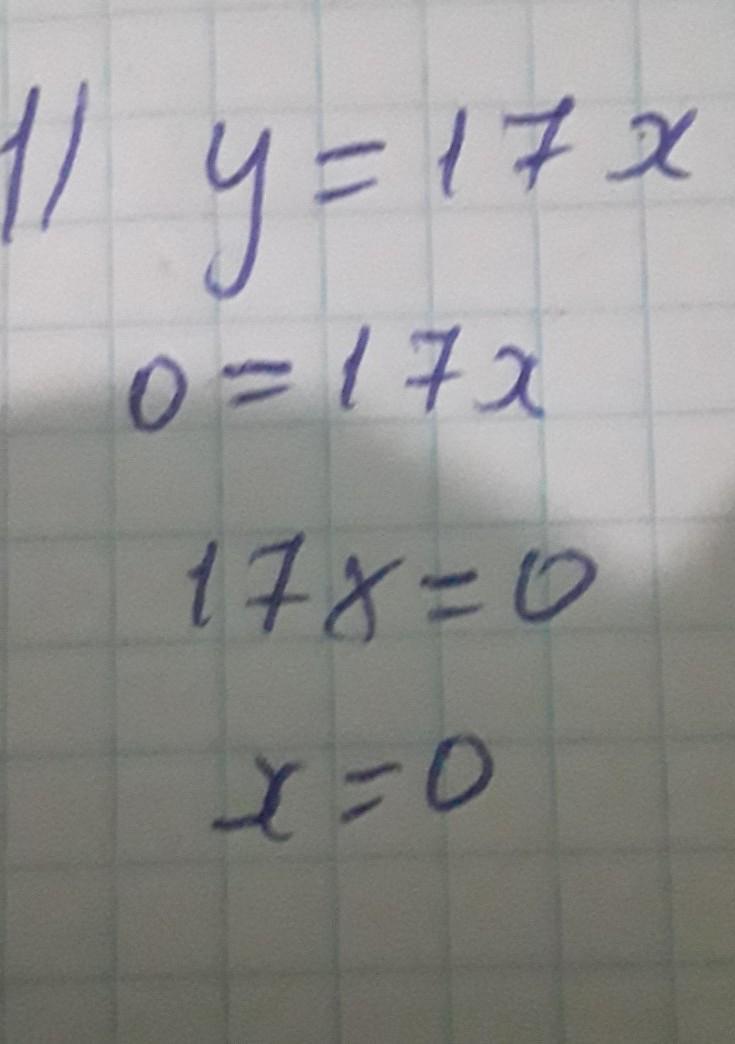 1) y = 17x
0 = 17x
17x = 0
x = 0